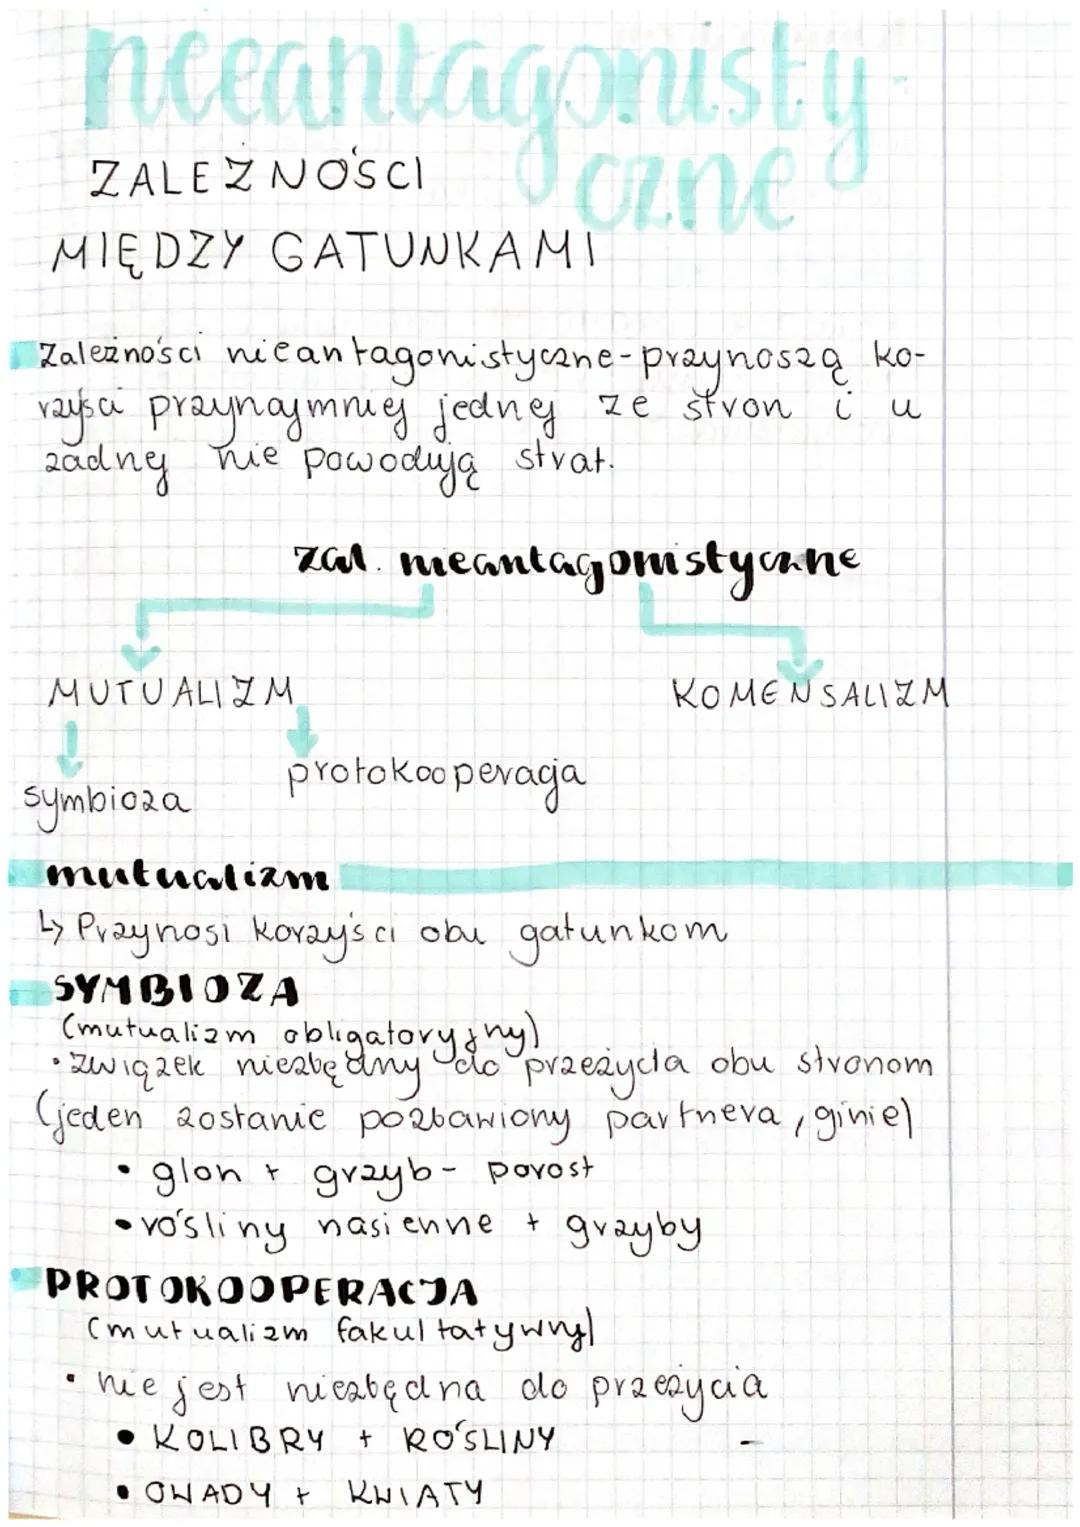 nieantagonisty-
czne
ZALEŻNOŚCI
MIĘDZY GATUNKAMI
Zależności nieantagonistyczne - przynoszą ko-
rzyści przynajmniej jednej ze stron i u
żadnej nie powodują strat.
zal. nieantagonistyczne
MUTUALIZM KOMENSALIZM
symbioza protokooperacja
mutualizm
↳ Przynosi korzyści obu gatunkom
SYMBIOZA
(mutualizm obligatoryjny)
• związek niezbędny do przeżycia obu stronom
(jeden zostanie pozbawiony partnera, ginie)
• glon + grzyb - porost
• rośliny nasienne + grzyby
PROTOKOOPERACJA
(mutualizm fakultatywny)
• nie jest niezbędna do przeżycia
• KOLIBRY + ROŚLINY
• OWADY + KWIATY